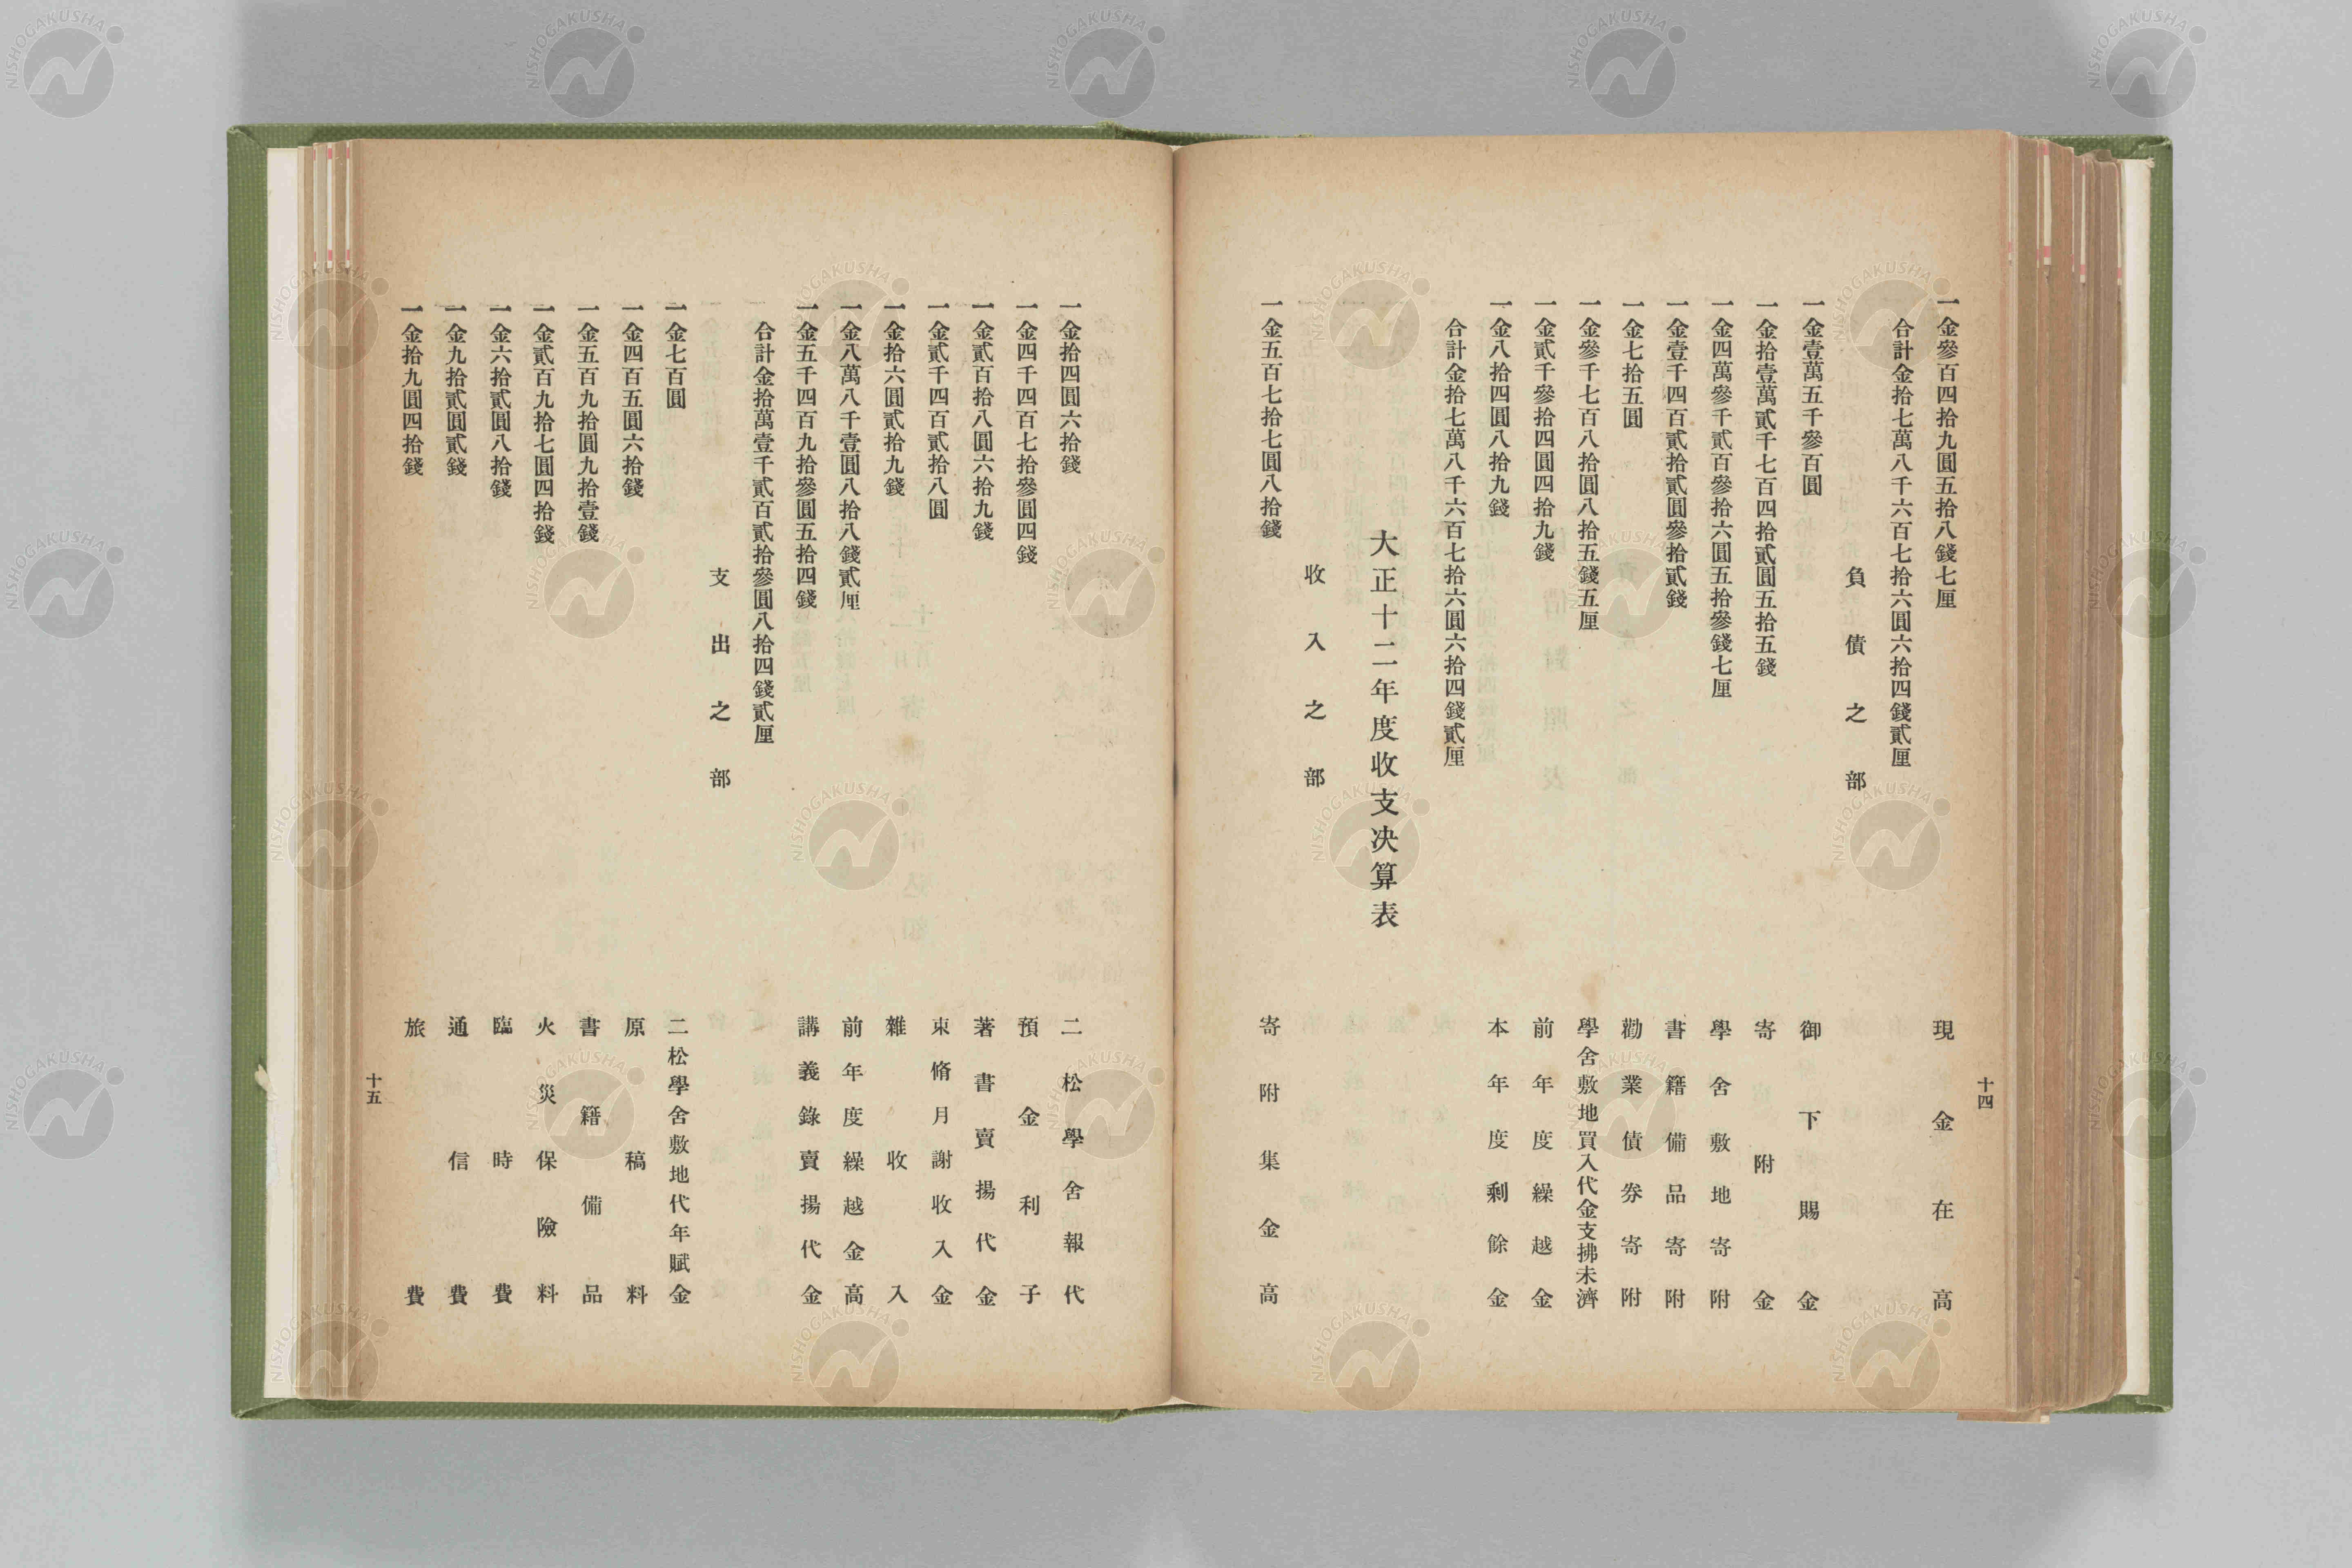 十四
一金參百四拾九圓五拾八錢七厘 現金在高
合計金拾七萬八千六百七拾六圓六拾四錢貳厘
負債之部
一金壹萬五千參百圓 御下賜金
一金拾壹萬貳千七百四拾貳圓五拾五錢 寄附金
一金四萬參千貳百參拾六圓五拾參錢七厘 學舍敷地寄附
一金壹千四百貳拾貳圓參拾貳錢 書籍備品寄附
一金七拾五圓 勸業債券寄附
一金參千七百八拾圓八拾五錢五厘 學舍敷地買入代金支拂未濟
一金貳千參拾四圓四拾九錢 前年度繰越金
一金八拾四圓八拾九錢 本年度剩餘金
合計金拾七萬八千六百七拾六圓六拾四錢貳厘
大正十二年度收支決算表
收入之部
一金五百七拾七圓八拾錢 寄附集金高
一金拾四圓六拾錢 二松學舍報代
一金四千四百七拾參圓四錢 預金利子
一金貳百拾八圓六拾九錢 著書賣揚代金
一金貳千四百貳拾八圓 束脩月謝收入金
一金拾六圓貳拾九錢 雜收入
一金八萬八千壹圓八拾八錢貳厘 前年度繰越金高
一金五千四百九拾參圓五拾四錢 講義錄賣揚代金
合計金拾萬壹千貳百貳拾參圓八拾四錢貳厘
支出之部
一金七百圓 二松學舍敷地代年賦金
一金四百五圓六拾錢 原稿料
一金五百九拾圓九拾壹錢 書籍備品
一金貳百九拾七圓四拾錢 火災保險料
一金六拾貳圓八拾錢 臨時費
一金九拾貳圓貳錢 通信費
一金拾九圓四拾錢 旅費
十五
NISHOGAKUSHA